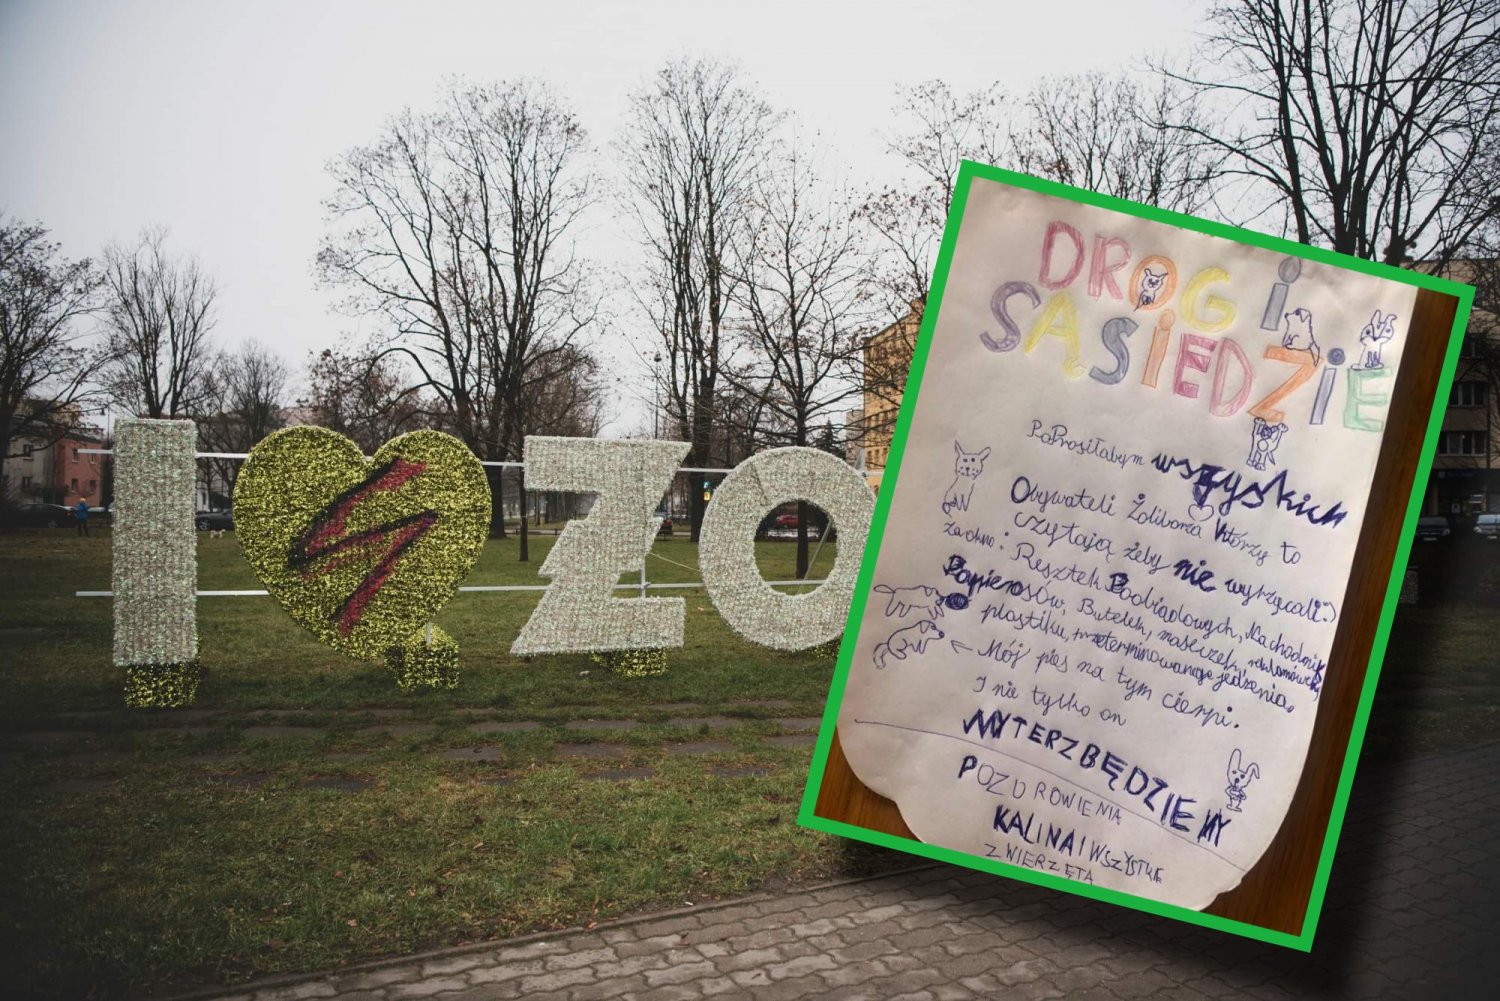 I ZO
DROGI
SĄSIEDZIE
PoProsiłabym wszyskich
Obywateli Żoliborza którzy to
czytają żeby nie wyrzucali:)
za okno: Resztek Poobiadowych,
Papierosów, Butelek, maseczek,
plastiku, przeterminowanego jedzenia.
← Mój pies na tym cierpi.
I nie tylko on
MY TERZ BĘDZIEMY
POZDROWIENIA
KALINA I WSZYSTKIE
ZWIERZĘTA